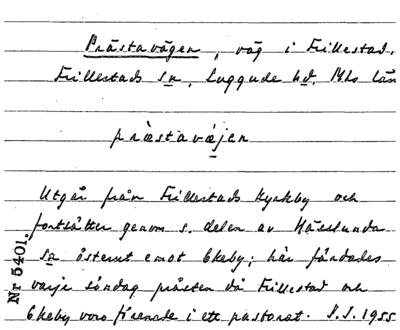 Prästavägen, väg i Frillestad.
Frillestads sn, Luggude hd. Mhs län
præstavæjen
Utgår från Frillestads kyrkby och
fortsätter genom s. delen av Hässlunda
sn österut emot Ekeby; här färdades
varje söndag prästen då Frillestad och
Ekeby voro förenade i ett pastorat. S.I. 1955
Nr 5401.